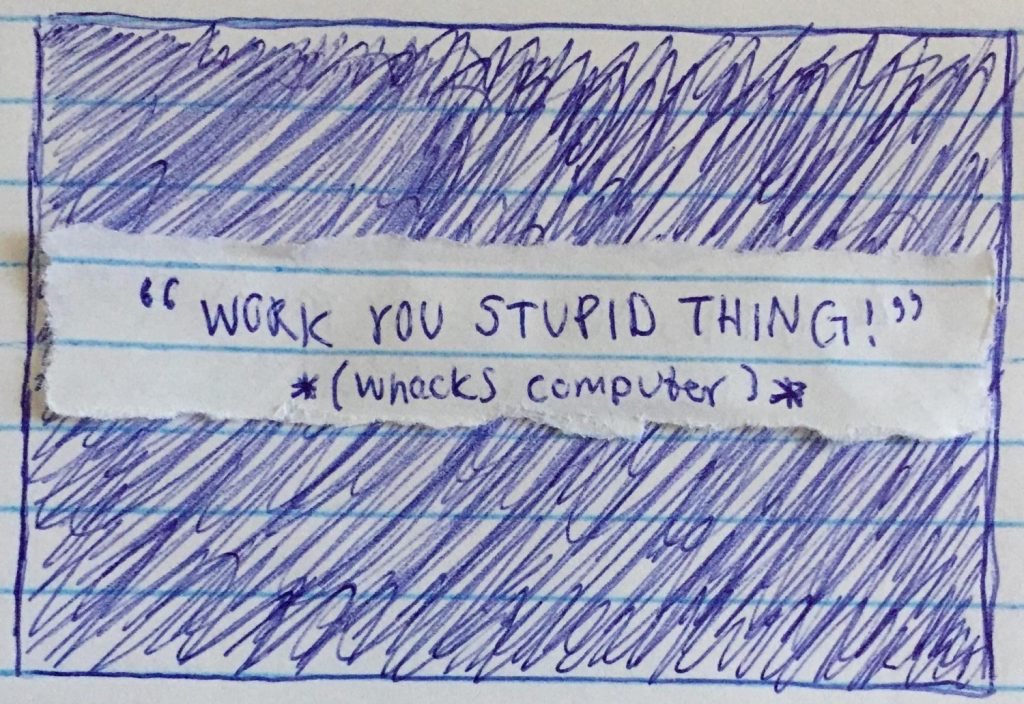 “WORK YOU STUPID THING!”
*(whacks computer)*